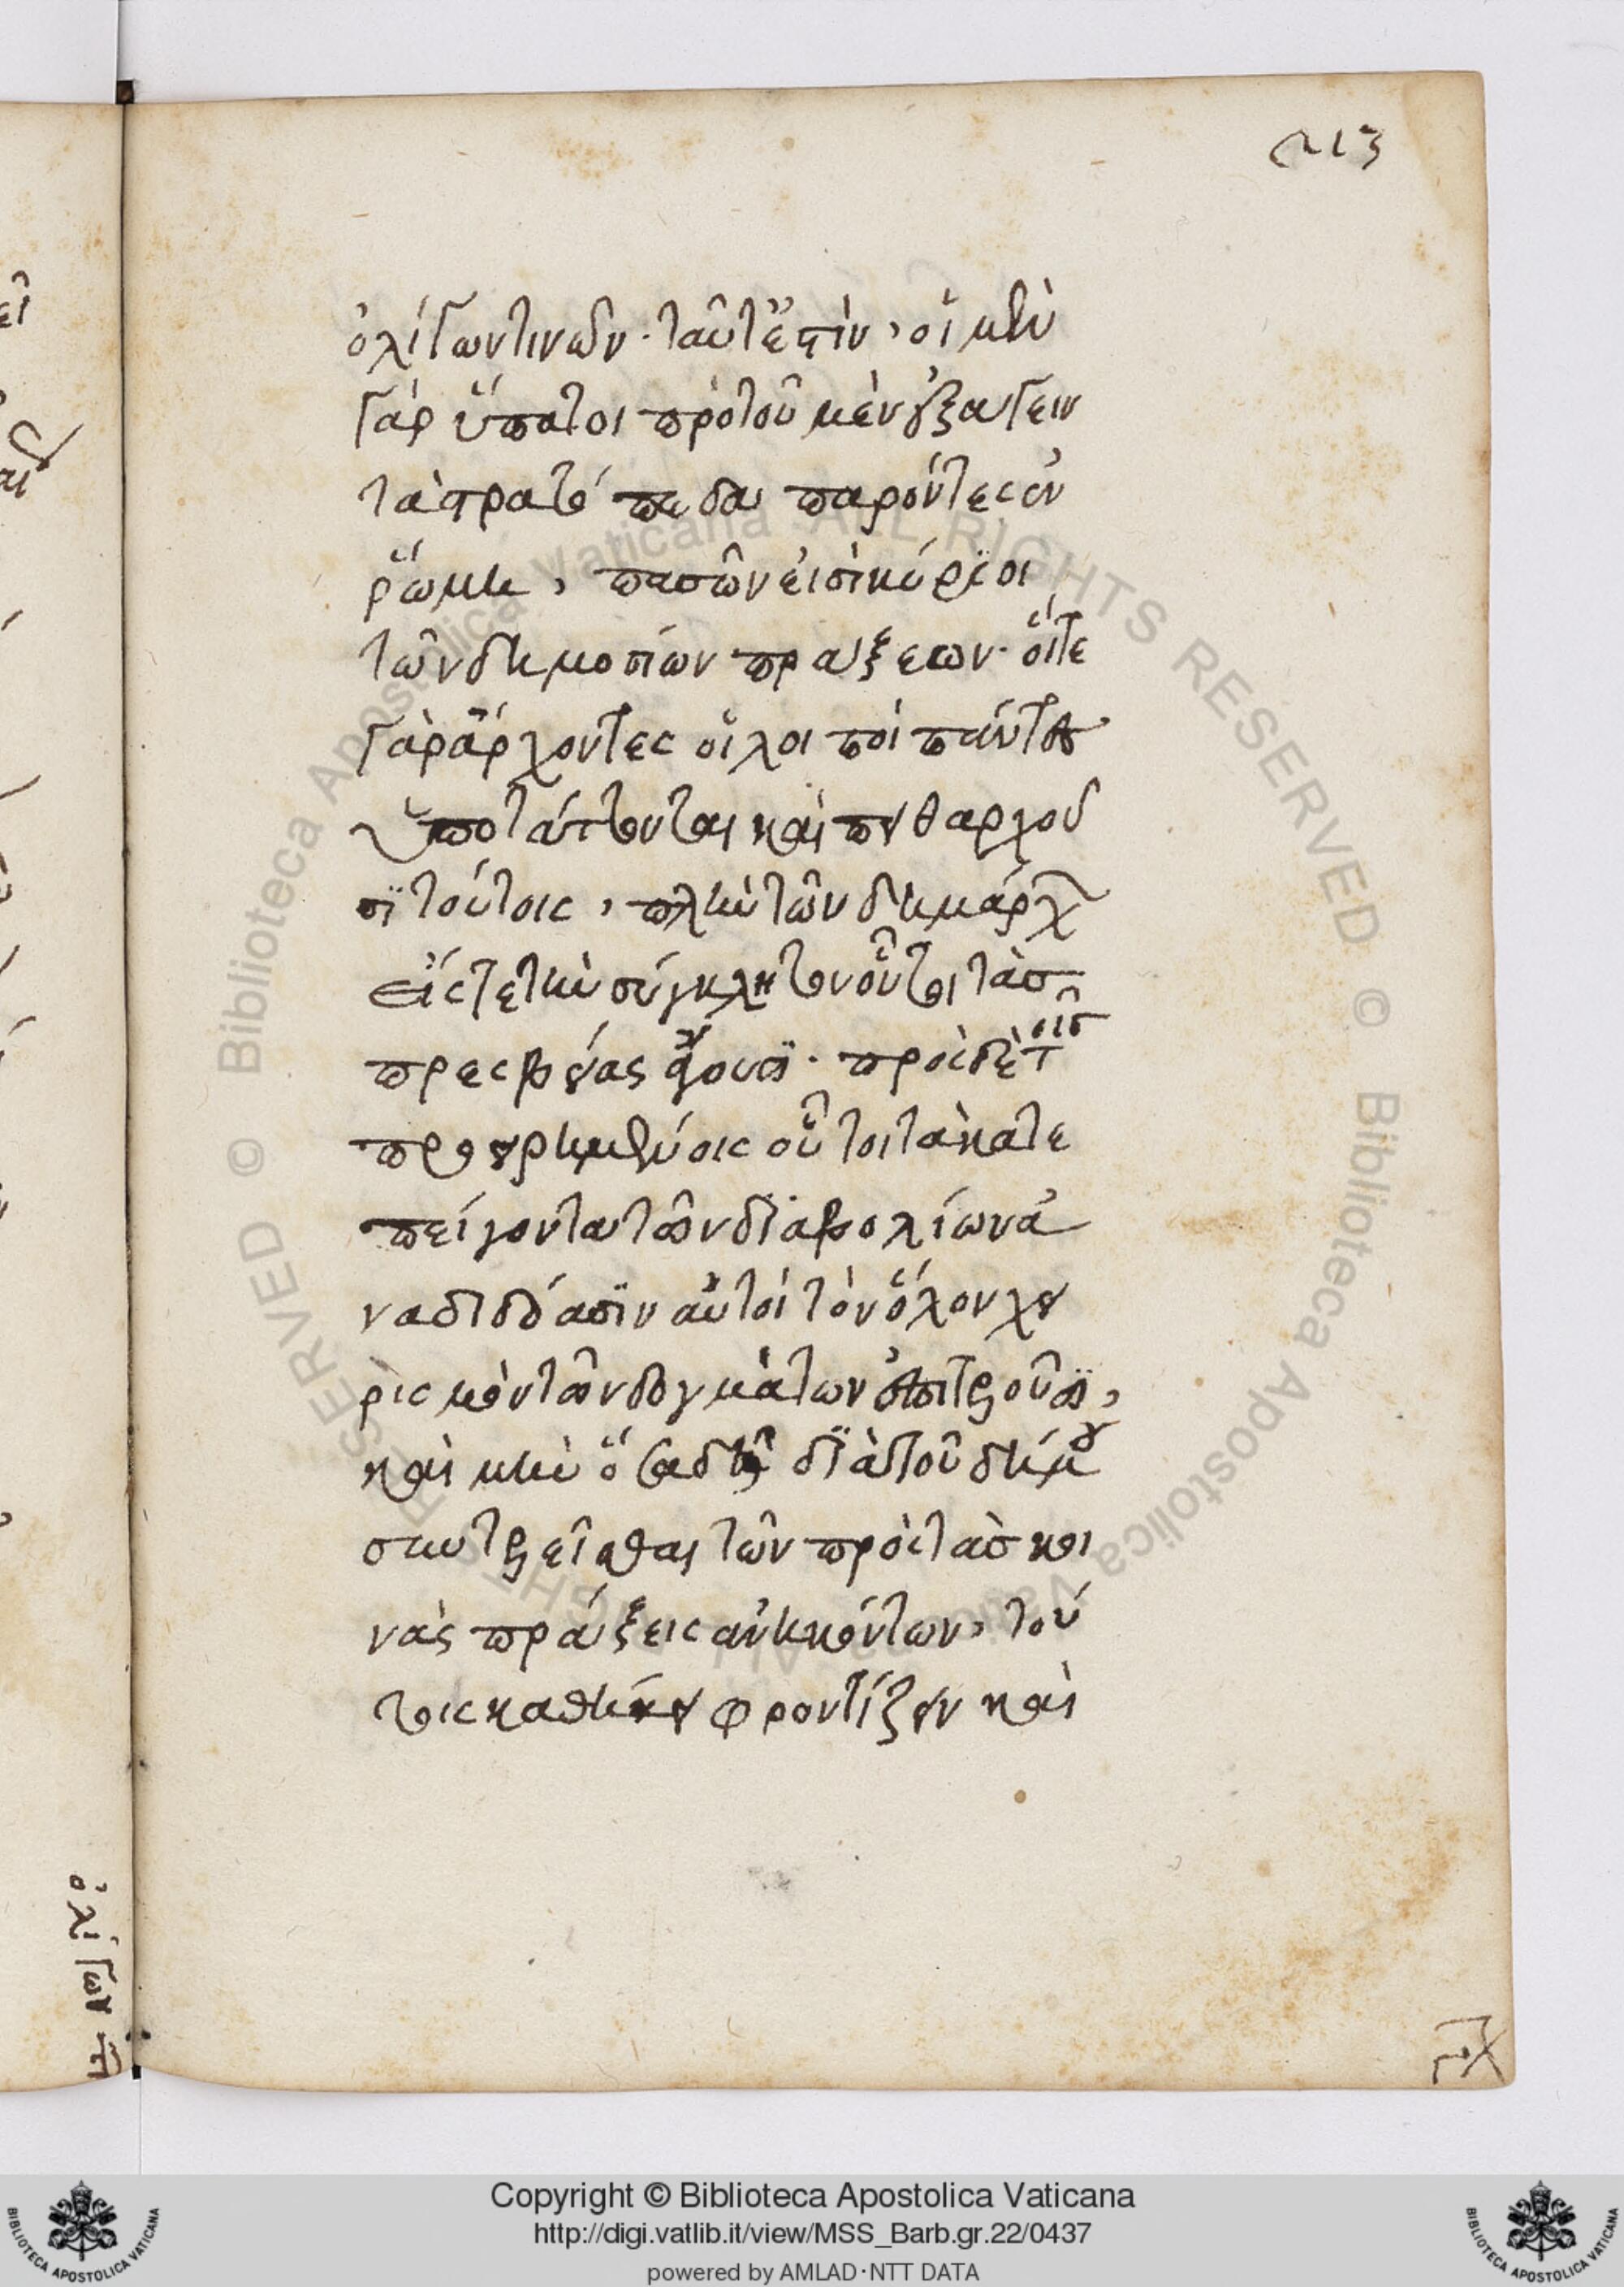 213
ὀλίγων τινῶν· ταῦτ' ἔστιν, οἱ μὲν
γὰρ ὕπατοι πρὸ τοῦ μὲν ἐξάγειν
τὰ στρατόπεδα παρόντες ἐν
ῥώμη, πασῶν εἰσὶ κύριοι
τῶν δημοσίων πράξεων· οἵτε
γὰρ ἄρχοντες οἱ λοιποὶ πάντες
ὑποτάττονται καὶ πειθαρχοῦ
σι τούτοις, πλὴν τῶν δημάρχων
εἴς τε τὴν σύγκλητον οὗτοι τὰσ
πρεσβείας ἄγουσι· πρὸς δὲ τοῖσ
προειρημένοις οὗτοι τὰ κατε
πείγοντα τῶν διαβολίων ἀ
ναδιδόασιν αὐτοὶ τὸν ὅλον χει
ρισμὸν τῶν δογμάτων ἐπιτελοῦσι,
καὶ μὴν ὅσα δεῖ διὰ τοῦ δήμου
συντελεῖσθαι τῶν πρὸς τὰσ κοι
νὰς πράξεις ἀνηκόντων, τού
τοις καθήκει φροντίζειν καὶ
ὀλίγων τι
Copyright © Biblioteca Apostolica Vaticana
http://digi.vatlib.it/view/MSS_Barb.gr.22/0437
powered by AMLAD·NTT DATA
© Biblioteca Apostolica Vaticana - ALL RIGHTS RESERVED
© Biblioteca Apostolica Vaticana - ALL RIGHTS RESERVED
BIBLIOTECA APOSTOLICA VATICANA
BIBLIOTECA APOSTOLICA VATICANA